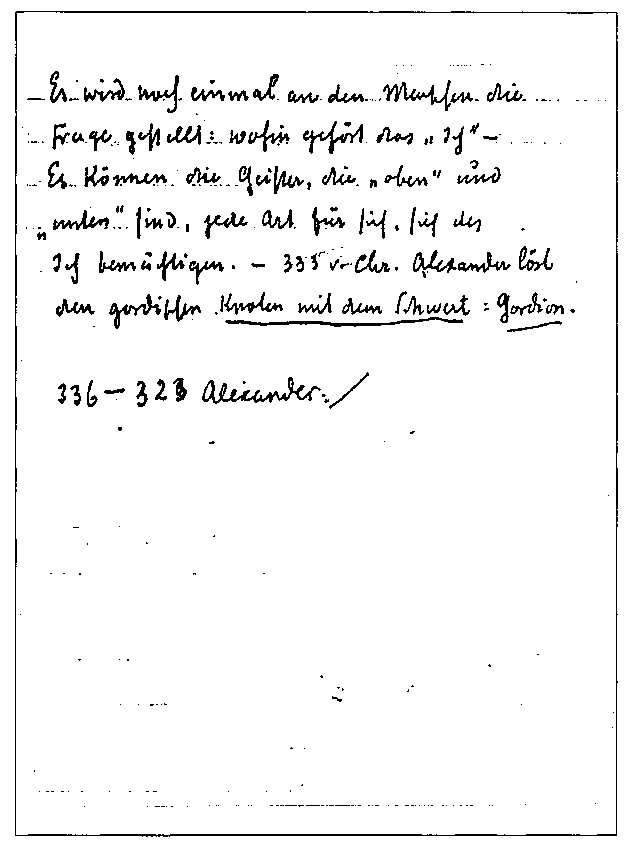 Es wird noch einmal an den Menschen die
Frage gestellt: wohin gehört das „Ich" –
Es können die Geister, die „oben" und
„unten" sind, jede Art für sich, sich des
Ich bemächtigen. – 333 v. Chr. Alexander löst
den gordischen Knoten mit dem Schwert : Gordion.
336 – 323 Alexander :/